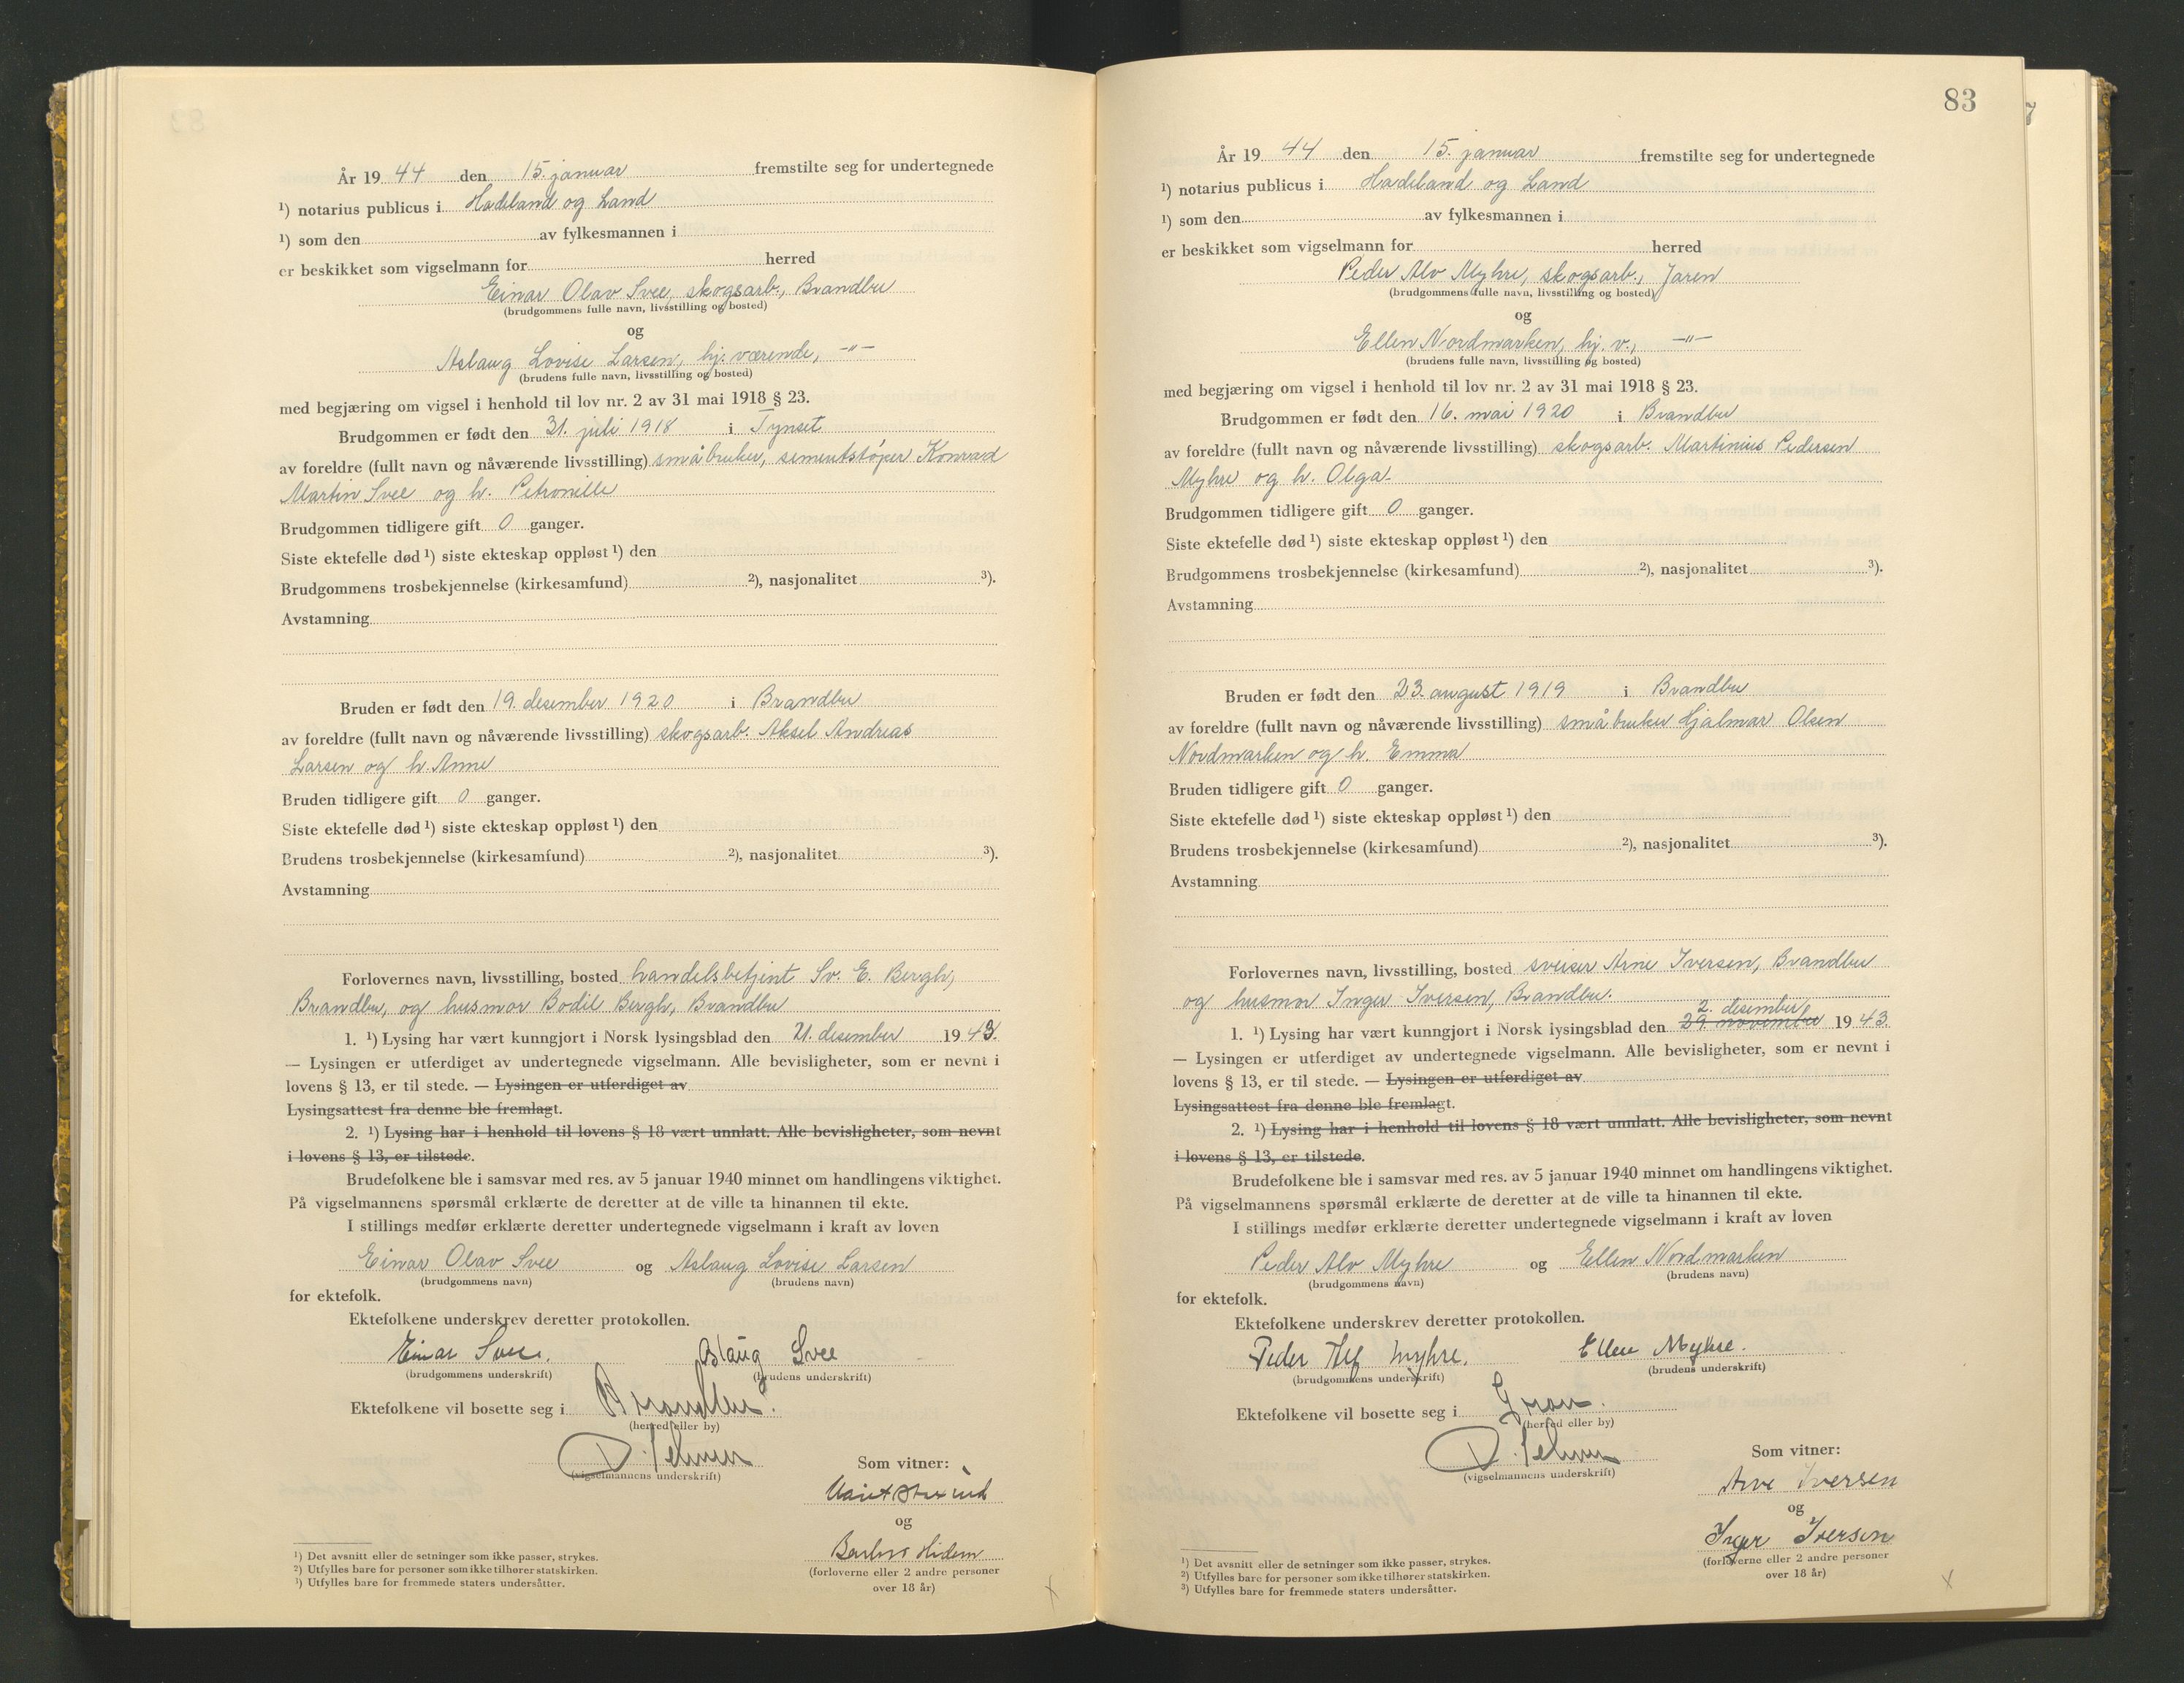 År 19 44 den 15. januar fremstilte seg for undertegnede
¹) notarius publicus i Hadeland og Land
¹) som den av fylkesmannen i
er beskikket som vigselmann for herred
Einar Olav Svee, skogsarb., Brandbu
(brudgommens fulle navn, livsstilling og bosted)
og
Aslaug Lovise Larsen, hj. værende, -"-
(brudens fulle navn, livsstilling og bosted)
med begjæring om vigsel i henhold til lov nr. 2 av 31 mai 1918 § 23.
Brudgommen er født den 31. juli 1918 i Tynset
av foreldre (fullt navn og nåværende livsstilling) småbruker, sementstøper Konrad
Martin Svee og h. Petronille
Brudgommen tidligere gift 0 ganger.
Siste ektefelle død ¹) siste ekteskap oppløst ¹) den
Brudgommens trosbekjennelse (kirkesamfund) ²), nasjonalitet ³).
Avstamning
Bruden er født den 19. desember 1920 i Brandbu
av foreldre (fullt navn og nåværende livsstilling) skogsarb. Aksel Andreas
Larsen og h. Anne
Bruden tidligere gift 0 ganger.
Siste ektefelle død ¹) siste ekteskap oppløst ¹) den
Brudens trosbekjennelse (kirkesamfund) ²), nasjonalitet ³).
Avstamning
Forlovernes navn, livsstilling, bosted handelsbetjent Sv. E. Bergh,
Brandbu, og husmor Bodil Bergh, Brandbu
1. ¹) Lysing har vært kunngjort i Norsk lysingsblad den 21. desember 19 43.
— Lysingen er utferdiget av undertegnede vigselmann. Alle bevisligheter, som er nevnt i
lovens § 13, er til stede. — Lysingen er utferdiget av
Lysingsattest fra denne ble fremlagt.
2. ¹) Lysing har i henhold til lovens § 18 vært unnlatt. Alle bevisligheter, som nevnt
i lovens § 13, er tilstede.
Brudefolkene ble i samsvar med res. av 5 januar 1940 minnet om handlingens viktighet.
På vigselmannens spørsmål erklærte de deretter at de ville ta hinannen til ekte.
I stillings medfør erklærte deretter undertegnede vigselmann i kraft av loven
Einar Olav Svee og Aslaug Lovise Larsen
(brudgommens navn) (brudens navn)
for ektefolk.
Ektefolkene underskrev deretter protokollen.
Einar Svee. Aslaug Svee
(brudgommens underskrift) (brudens underskrift)
Ektefolkene vil bosette seg i Brandbu.
(herred eller by)
(vigselmannens underskrift)
Som vitner:
og
(forloverne eller 2 andre personer
over 18 år)
¹) Det avsnitt eller de setninger som ikke passer, strykes.
²) Utfylles bare for personer som ikke tilhører statskirken.
³) Utfylles bare for fremmede staters undersåtter.
83
År 19 44 den 15. januar fremstilte seg for undertegnede
¹) notarius publicus i Hadeland og Land
¹) som den av fylkesmannen i
er beskikket som vigselmann for herred
Peder Alv Myhre, skogsarb., Jaren
(brudgommens fulle navn, livsstilling og bosted)
og
Ellen Nordmarken, hj. v., -"-
(brudens fulle navn, livsstilling og bosted)
med begjæring om vigsel i henhold til lov nr. 2 av 31 mai 1918 § 23.
Brudgommen er født den 16. mai 1920 i Brandbu
av foreldre (fullt navn og nåværende livsstilling) skogsarb. Martinius Pedersen
Myhre og h. Olga.
Brudgommen tidligere gift 0 ganger.
Siste ektefelle død ¹) siste ekteskap oppløst ¹) den
Brudgommens trosbekjennelse (kirkesamfund) ²), nasjonalitet ³).
Avstamning
Bruden er født den 23. august 1919 i Brandbu
av foreldre (fullt navn og nåværende livsstilling) småbruker Hjalmar Olsen
Nordmarken og h. Emma
Bruden tidligere gift 0 ganger.
Siste ektefelle død ¹) siste ekteskap oppløst ¹) den
Brudens trosbekjennelse (kirkesamfund) ²), nasjonalitet ³).
Avstamning
Forlovernes navn, livsstilling, bosted sveiser Arne Iversen, Brandbu
og husmor Inger Iversen, Brandbu.
2. desember
1. ¹) Lysing har vært kunngjort i Norsk lysingsblad den 29. november 19 43.
— Lysingen er utferdiget av undertegnede vigselmann. Alle bevisligheter, som er nevnt i
lovens § 13, er til stede. — Lysingen er utferdiget av
Lysingsattest fra denne ble fremlagt.
2. ¹) Lysing har i henhold til lovens § 18 vært unnlatt. Alle bevisligheter, som nevnt
i lovens § 13, er tilstede.
Brudefolkene ble i samsvar med res. av 5 januar 1940 minnet om handlingens viktighet.
På vigselmannens spørsmål erklærte de deretter at de ville ta hinannen til ekte.
I stillings medfør erklærte deretter undertegnede vigselmann i kraft av loven
Peder Alv Myhre og Ellen Nordmarken
(brudgommens navn) (brudens navn)
for ektefolk.
Ektefolkene underskrev deretter protokollen.
Peder Alf Myhre. Ellen Myhre.
(brudgommens underskrift) (brudens underskrift)
Ektefolkene vil bosette seg i Gran.
(herred eller by)
(vigselmannens underskrift)
Som vitner:
Arne Iversen
og
Inger Iversen
(forloverne eller 2 andre personer
over 18 år)
¹) Det avsnitt eller de setninger som ikke passer, strykes.
²) Utfylles bare for personer som ikke tilhører statskirken.
³) Utfylles bare for fremmede staters undersåtter.